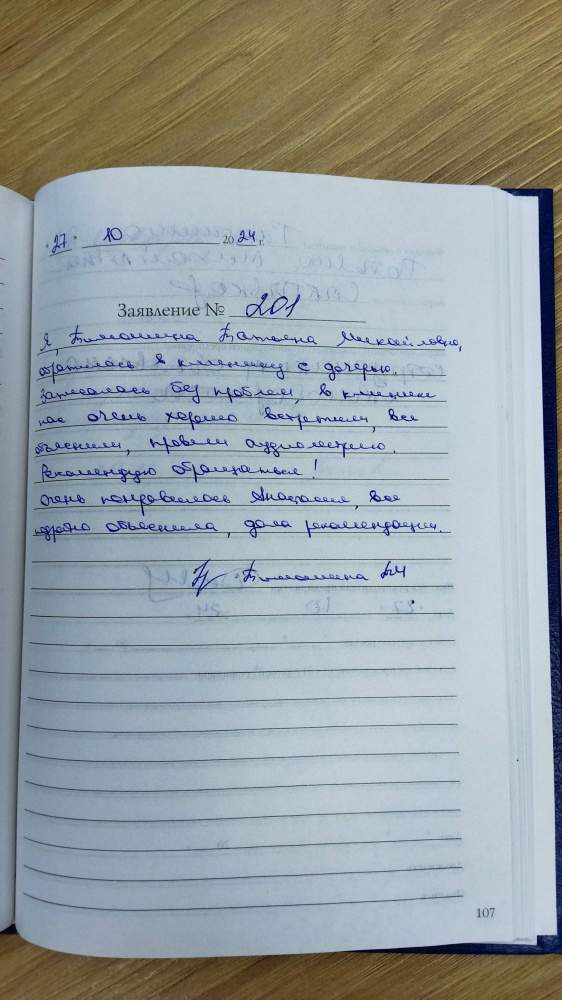 "27" 10 2024 г.
Заявление № 201
Я, Тимошина Татьяна Михайловна,
обратилась в клинику с дочерью.
Записалась без проблем, в клинике
нас очень хорошо встретили, все
объяснили, провели аудиометрию.
Рекомендую обращаться!
Очень понравилась Анастасия, все
объяснила, дала рекомендации.
Тимошина ТМ
107